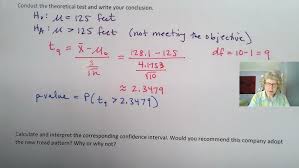 Conduct the theoretical test and write your conclusion.
H₀: μ = 125 feet
Hₐ: μ > 125 feet (not meeting the objective)
t₉ = x̄ - μ₀ / s/√n = 128.1 - 125 / 4.1753/√10 df = 10 - 1 = 9
≈ 2.3479
pvalue = P(t₉ > 2.3479)
Calculate and interpret the corresponding confidence interval. Would you recommend this company adopt
the new tread pattern? Why or why not?